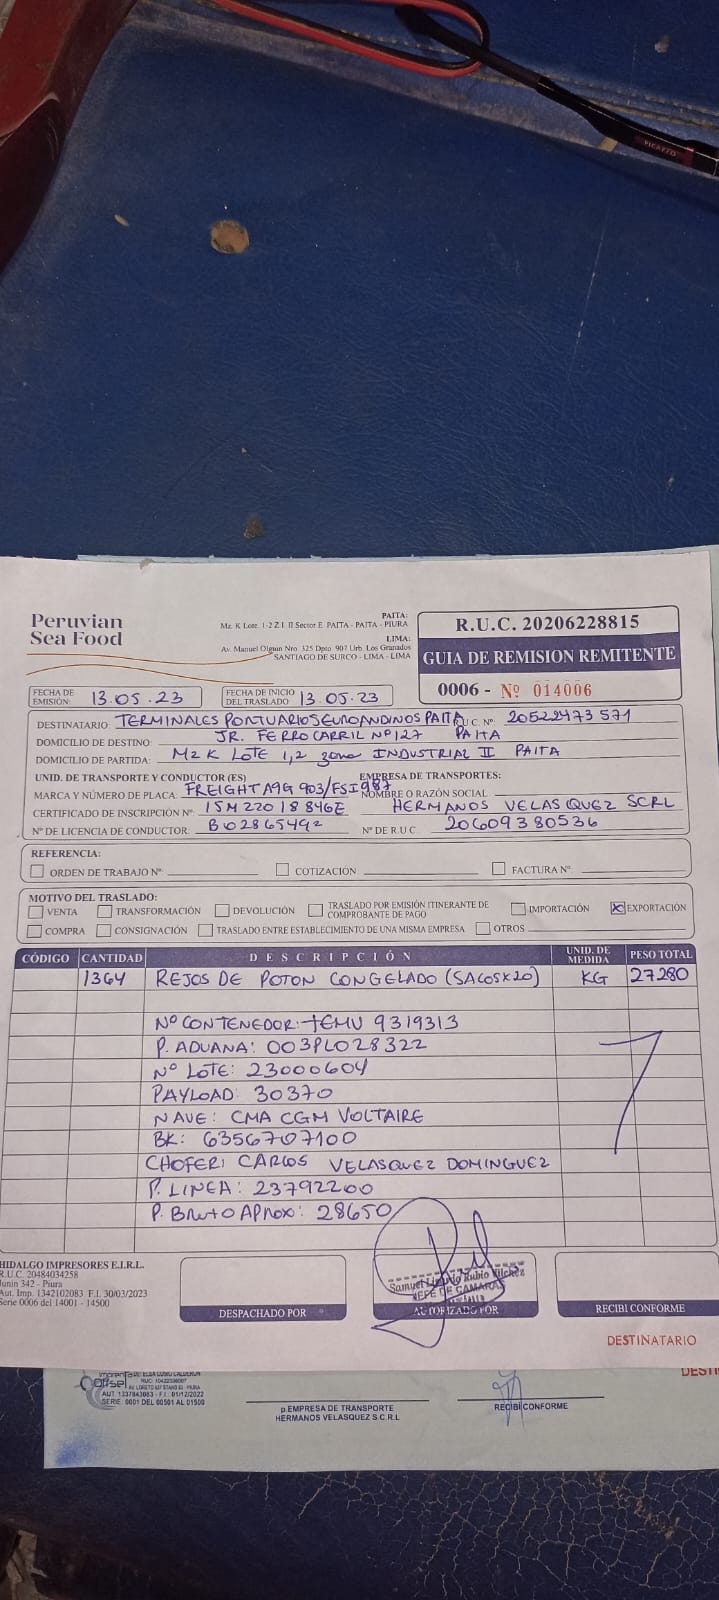 PICASSO
Peruvian
Sea Food
PAITA:
Mz. K Lote. 1-2 Z.I. II Sector E PAITA - PAITA - PIURA
LIMA:
Av. Manuel Olguin Nro. 325 Dpto. 907 Urb. Los Granados
SANTIAGO DE SURCO - LIMA - LIMA
R.U.C. 20206228815
GUIA DE REMISION REMITENTE
0006 - Nº 014006
FECHA DE EMISIÓN: 13.05.23 FECHA DE INICIO DEL TRASLADO 13.05.23
DESTINATARIO: TERMINALES PORTUARIOS EUROANDINOS PAITA R.U.C. Nº 20522473571
DOMICILIO DE DESTINO: JR. FERROCARRIL Nº127 PAITA
DOMICILIO DE PARTIDA: MZ K LOTE 1,2 zona INDUSTRIAL II PAITA
UNID. DE TRANSPORTE Y CONDUCTOR (ES) EMPRESA DE TRANSPORTES:
MARCA Y NÚMERO DE PLACA: FREIGHT A9G 903/FSI987 NOMBRE O RAZÓN SOCIAL
CERTIFICADO DE INSCRIPCIÓN Nº 15M22018846E HERMANOS VELASQUEZ SCRL
Nº DE LICENCIA DE CONDUCTOR: B02865492 Nº DE R.U.C 20609380536
REFERENCIA:
ORDEN DE TRABAJO Nº COTIZACIÓN: FACTURA Nº
MOTIVO DEL TRASLADO:
VENTA TRANSFORMACIÓN DEVOLUCIÓN TRASLADO POR EMISIÓN ITINERANTE DE COMPROBANTE DE PAGO IMPORTACIÓN X EXPORTACIÓN
COMPRA CONSIGNACIÓN TRASLADO ENTRE ESTABLECIMIENTO DE UNA MISMA EMPRESA OTROS
CÓDIGO CANTIDAD DESCRIPCIÓN UNID. DE MEDIDA PESO TOTAL
1364 REJOS DE POTON CONGELADO (SACOSX20) KG 27280
Nº CONTENEDOR: TEMU 9319313
P. ADUANA: 003PL028322
Nº LOTE: 23000604
PAYLOAD: 30370
NAVE: CMA CGM VOLTAIRE
BK: 6356707100
CHOFER: CARLOS VELASQUEZ DOMINGUEZ
P. LINEA: 23792200
P. Bruto APROX: 28650
HIDALGO IMPRESORES E.I.R.L.
R.U.C. 20484034258
Junin 342 - Piura
Aut. Imp. 1342102083 F.I. 30/03/2023
Serie 0006 del 14001 - 14500
DESPACHADO POR
Samuel Rubio Vilchez
JEFE DE CAMARAS
AUTORIZADO POR
RECIBI CONFORME
DESTINATARIO
Offset
AUT. 1337843083 - F.I.: 01/12/2022
SERIE: 0001 DEL 00501 AL 01500
p.EMPRESA DE TRANSPORTE
HERMANOS VELASQUEZ S.C.R.L
RECIBI CONFORME